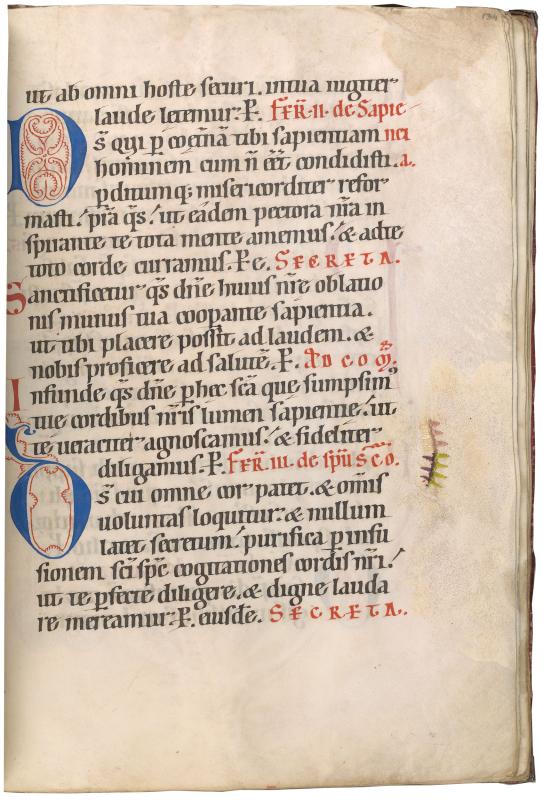 134
ut ab omni hoste securi. in tua iugiter
laude letemur. P. FER̄. II. de Sapie
D s̄ qui p̲ coet̄nā tibi sapientiam nti
hominem cum n̄ eēt condidisti. a.
p̲ditum q; misericorditer refor
masti. p̄ta q̄s. ut eādem pectora nr̄a in
spirante te tota mente amemus. & ad te
toto corde curramus. P. e. SECRETA.
Sanctificetur q̄s dn̄e huius nr̄e oblatio
nis munus tua coop̲ante sapientia.
ut tibi placere possit ad laudem. &
nobis proficere ad salutē. P. AD COM̄.
Infunde q̄s dn̄e p̲ hec sc̄a que sumpsim᾽
tue cordibus nr̄is lumen sapientie. ut
te ueraciter agnoscamus. & fideliter
diligamus. P. FER̄. III. de sp̄u sc̄o.
D s̄ cui omne cor patet. & om̄is
uoluntas loquitur. & nullum
latet secretum. purifica p̲ infu
sionem sc̄i sp̄c cogitationes cordis nr̄i.
ut te p̲fecte diligere. & digne lauda
re mereamur. P. eiusdē. SECRETA.